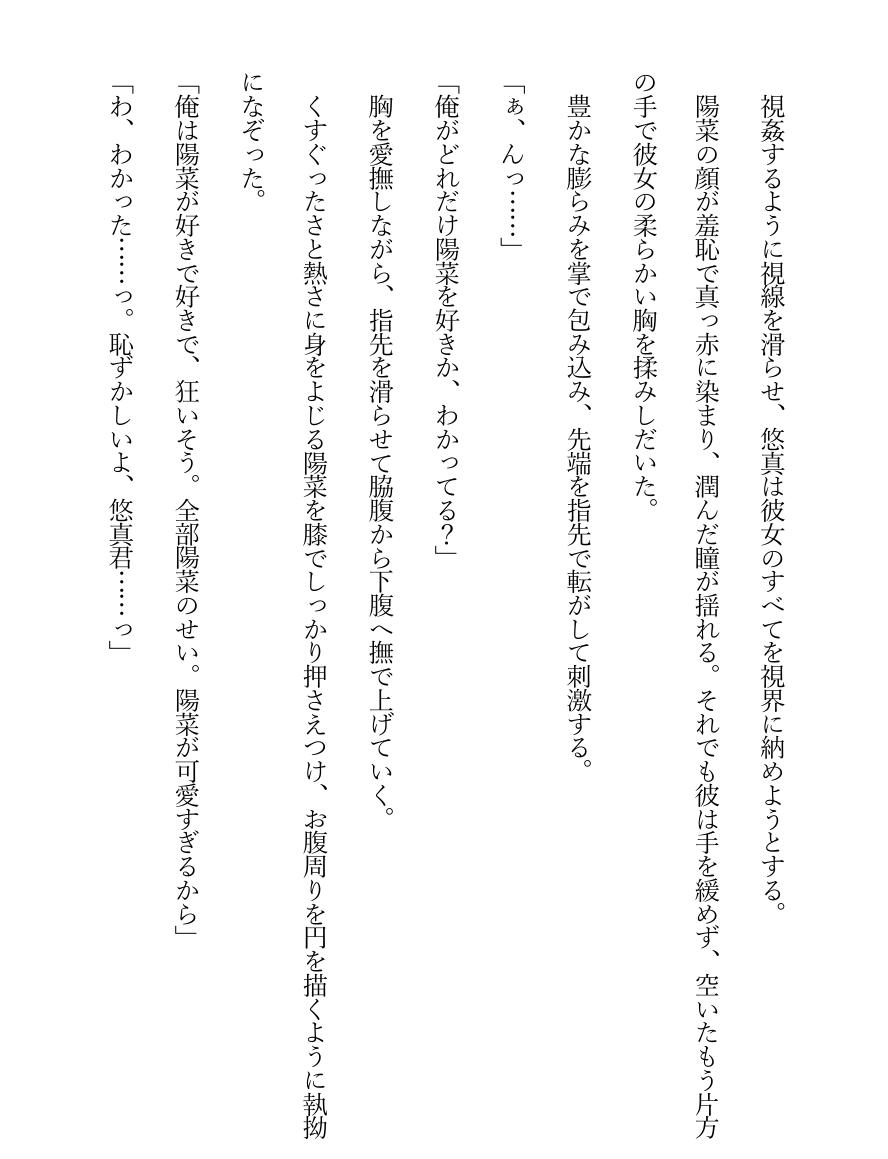 視姦するように視線を滑らせ、悠真は彼女のすべてを視界に納めようとする。
陽菜の顔が羞恥で真っ赤に染まり、潤んだ瞳が揺れる。それでも彼は手を緩めず、空いたもう片方
の手で彼女の柔らかい胸を揉みしだいた。
豊かな膨らみを掌で包み込み、先端を指先で転がして刺激する。
「ぁ、んっ……」
「俺がどれだけ陽菜を好きか、わかってる？」
胸を愛撫しながら、指先を滑らせて脇腹から下腹へ撫で上げていく。
くすぐったさと熱さに身をよじる陽菜を膝でしっかり押さえつけ、お腹周りを円を描くように執拗
になぞった。
「俺は陽菜が好きで好きで、狂いそう。全部陽菜のせい。陽菜が可愛すぎるから」
「わ、わかった……っ。恥ずかしいよ、悠真君……っ」